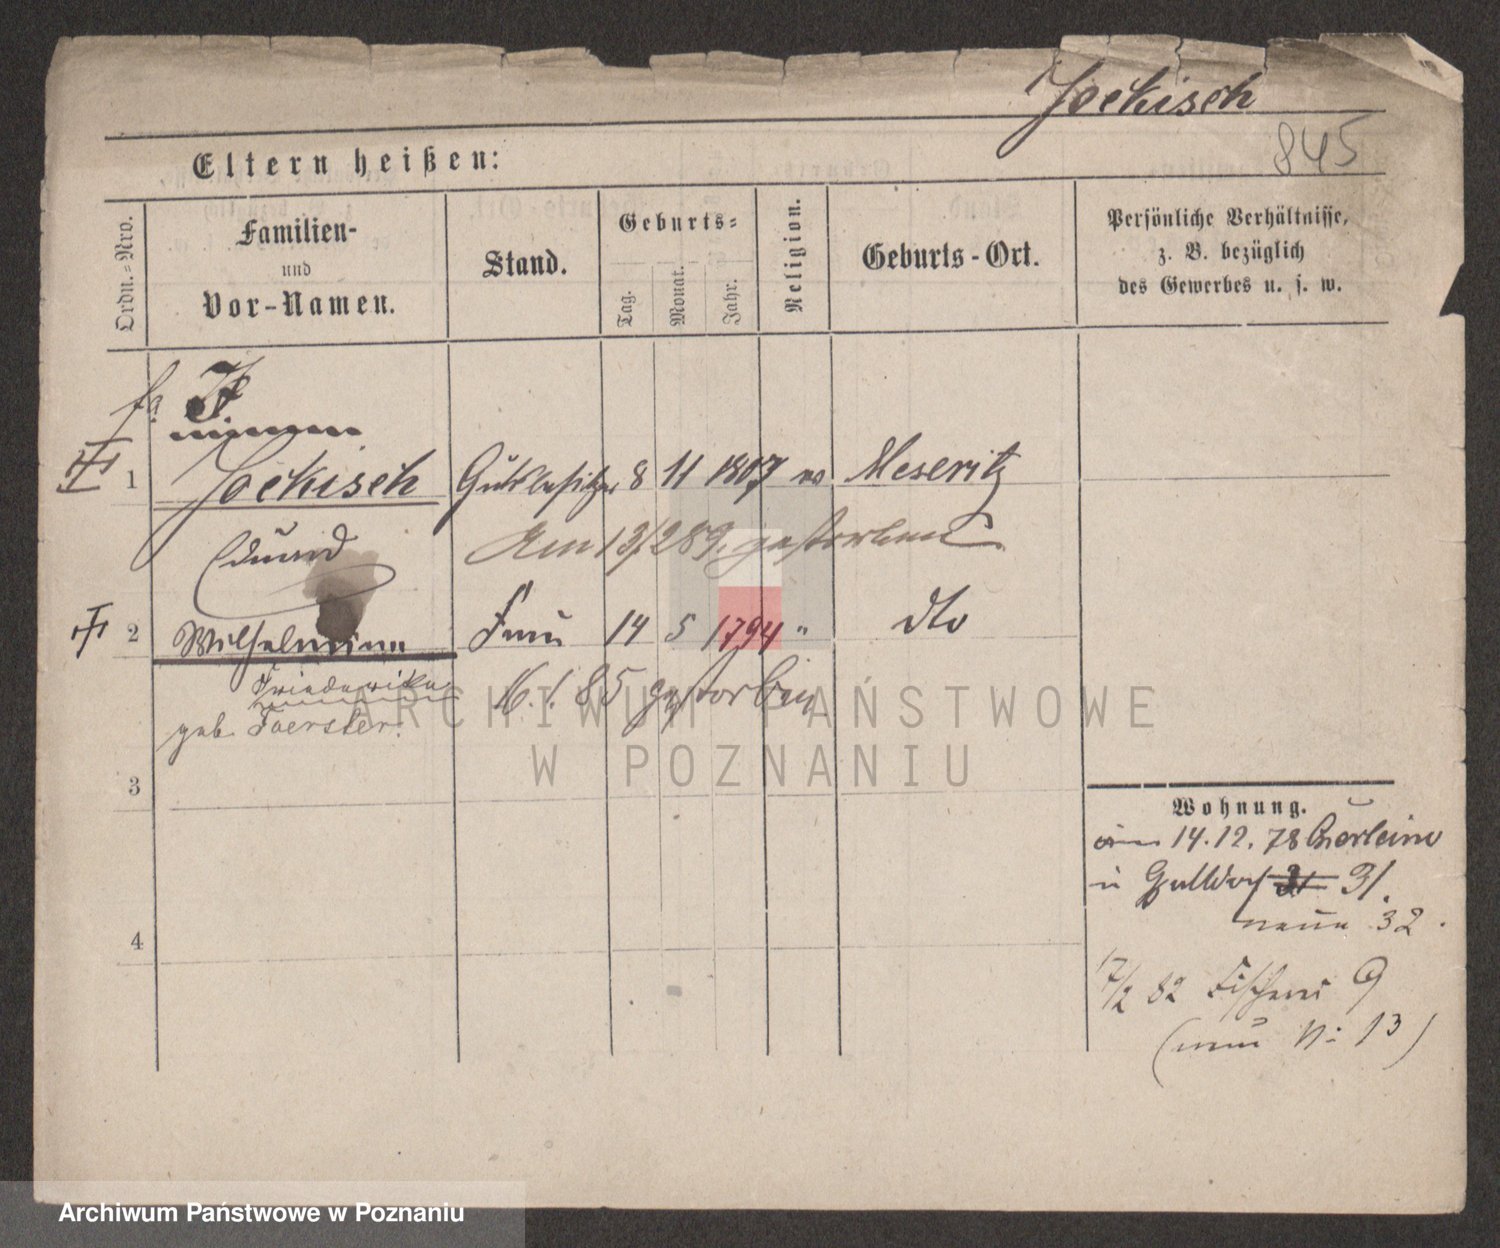 Jockisch
845
Eltern heißen:
Ordn.=Nro.
Familien-
und
Vor-Namen.
Stand.
Geburts=
Tag.
Monat.
Jahr.
Religion.
Geburts-Ort.
Persönliche Verhältnisse,
z. B. bezüglich
des Gewerbes u. s. w.
1 Jockisch Gutsbesitzer 8 11 1807 ev Meseritz
Eduard
Am 13/2 89. gestorben
2 Wilhelmine Frau 14 5 1794 " dto
Friederike
geb. Foerster.
6. 1. 85 gestorben
3
4
Wohnung.
14. 12. 78
31.
neue 32.
17/2 82 Fischerei 9
(neu N: 13)
ARCHIWUM PAŃSTWOWE
W POZNANIU
Archiwum Państwowe w Poznaniu